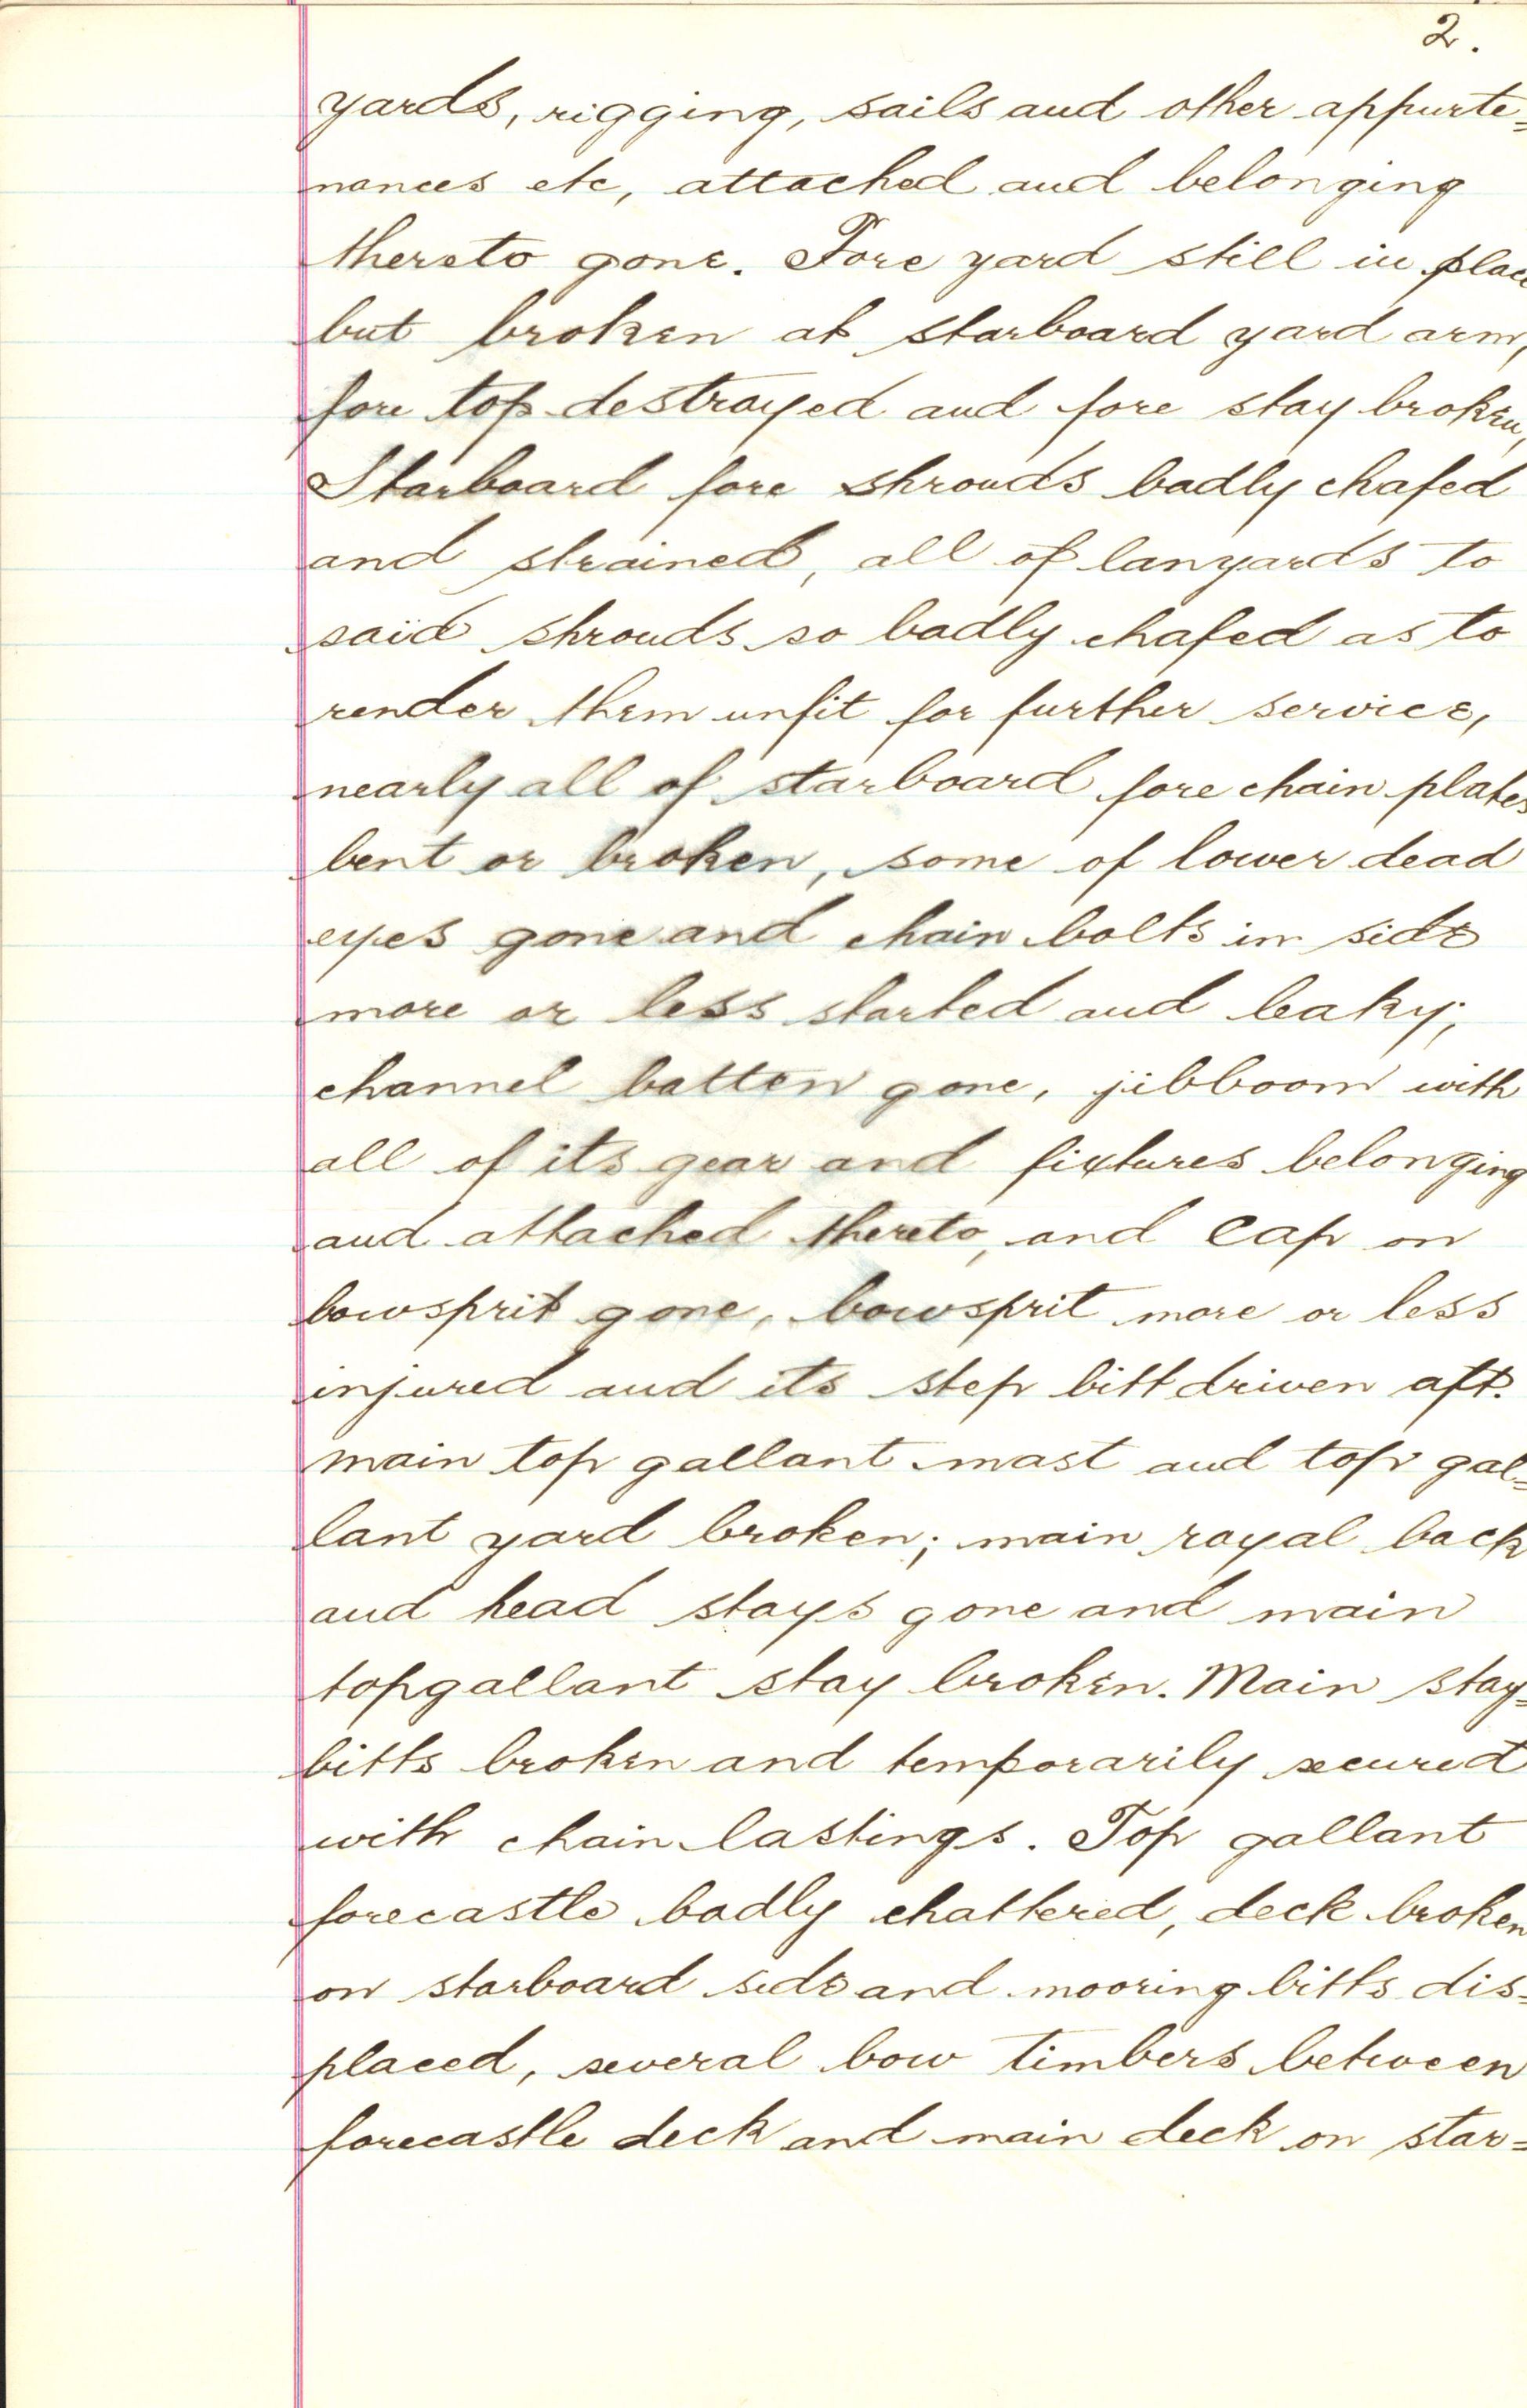 2.
yards, rigging, sails and other appurte=
nances etc, attached and belonging
thereto gone. Fore yard still in place
but broken at starboard yard arm,
fore top destroyed and fore stay broken,
Starboard fore shrouds badly chafed
and strained, all of lanyards to
said shrouds so badly chafed as to
render them unfit for further service,
nearly all of starboard fore chain plates
bent or broken, some of lower dead
eyes gone and chain bolts in side
more or less started and leaky;
channel batten gone, jibboom with
all of its gear and fixtures belonging
and attached thereto, and cap on
bowsprit gone, bowsprit more or less
injured and its step bitt driven aft.
main top gallant mast and top gal=
lant yard broken; main royal back
and head stays gone and main
topgallant stay broken. Main stay=
bitts broken and temporarily secured
with chain lastings. Top gallant
forecastle badly chattered, deck broken
on starboard side and mooring bitts dis=
placed, several bow timbers between
forecastle deck and main deck on star=